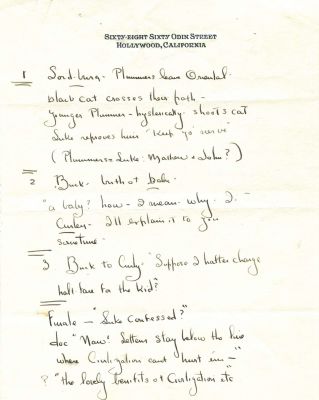 SIXTY-EIGHT SIXTY ODIN STREET
HOLLYWOOD, CALIFORNIA
1 Lordsburg - Plummers leave Oriental -
black cat crosses their path -
younger Plummer - hysterically - shoots cat
Luke reproves him "Keep yo' nerve"
(Plummers = Luke. Mathew & John?)
2 Buck - birth of babe -
"a baby? how - I mean - why - I -
Curley - I'll explain it to you
sometime -
3 Buck to Curly "Suppose I hafter charge
half fare for the kid?
Finale - "Luke confessed?"
doc "Naw! Lettem stay below the line
where Civilization cant hurt 'em -"
? "the lovely benifits of Civilization etc"